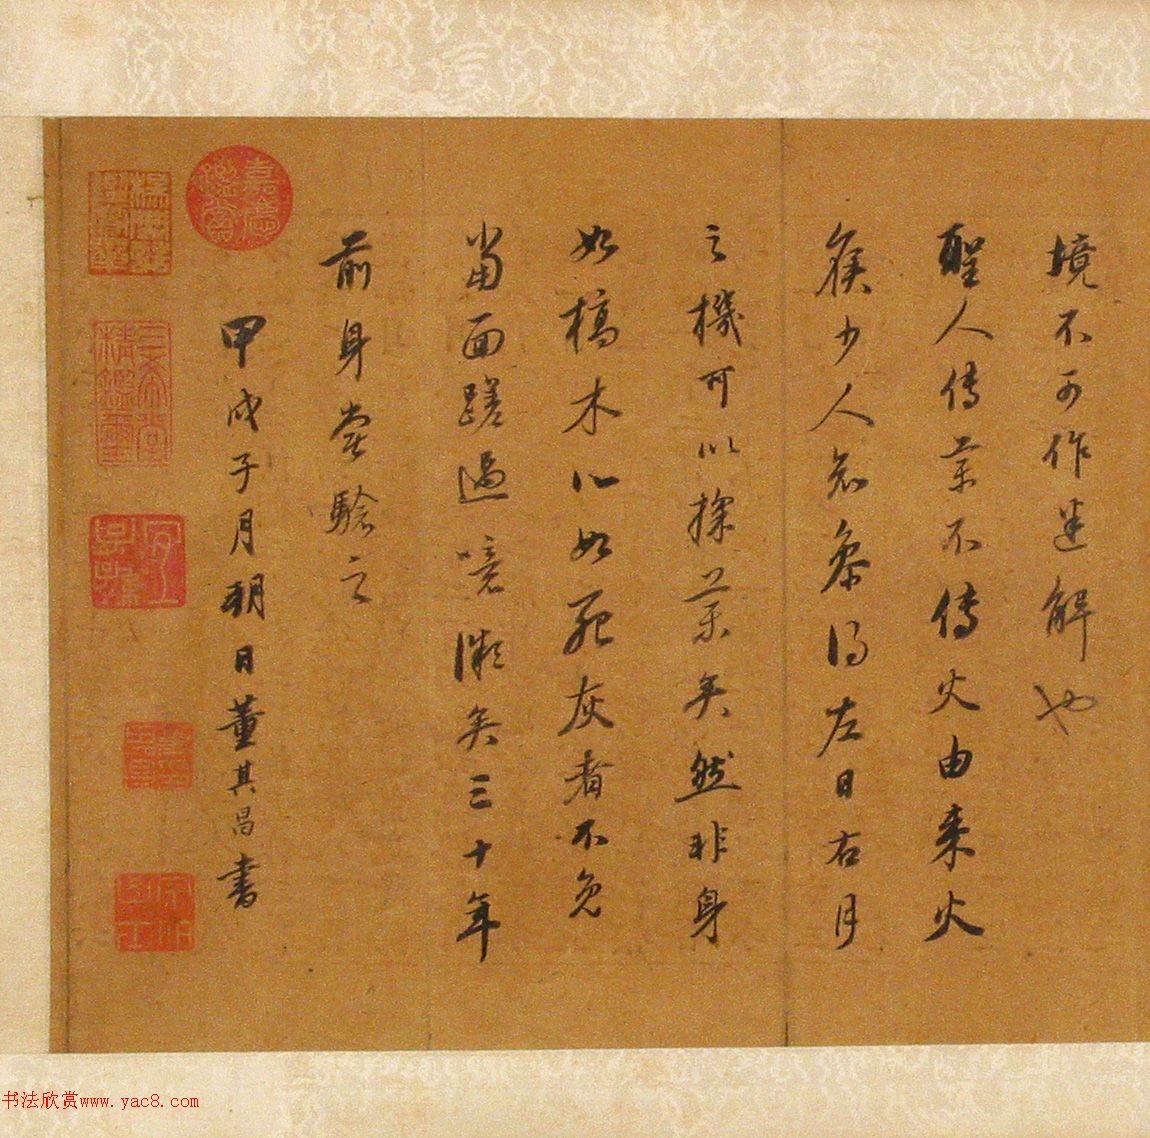 境不可作迷解也
聖人傳藥不傳火由来火
候少人知參得左日右月
之機可以採藥矣然非身
如槁木心如死灰者不免
當面蹉過噫微矣三十年
前身嘗驗之
甲戌子月朔日董其昌書
嘉慶鑑賞
三希堂精鑑璽
宜子孫
书法欣赏www.yac8.com